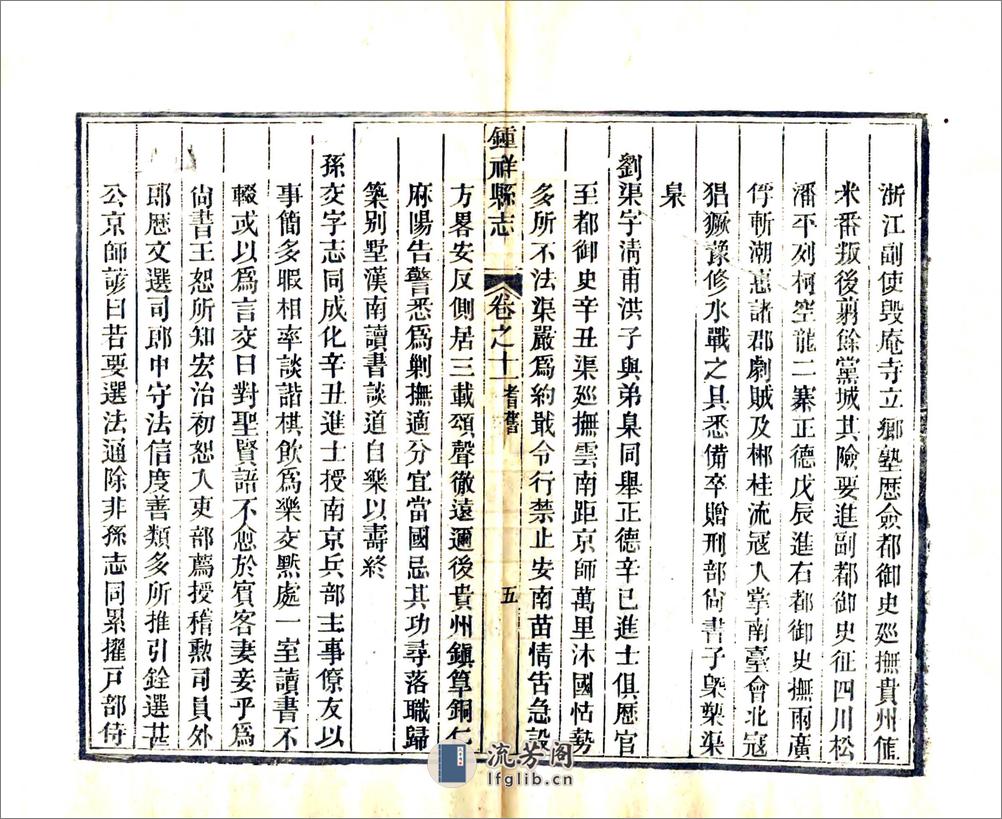 浙江副使毀庵寺立鄉塾歷僉都御史廵撫貴州僬
米番叛後剪餘黨城其險要進副都御史征四川松
潘平列柯空龍二寨正德戊辰進右都御史撫兩廣
俘斬潮惠諸郡劇賊及郴桂流冦入掌南臺會北冦
猖獗豫修水戰之具悉備卒贈刑部尚書子榘渠
臬
劉渠字清甫洪子與弟臬同舉正德辛巳進士俱歷官
至都御史辛丑渠廵撫雲南距京師萬里沐國怙勢
多所不法渠嚴爲約戢令行禁止安南苗情告急設
鍾祥縣志 卷之十一 耆舊 五
方畧安反側居三載頌聲徹遠邇後貴州鎭筸銅仁
麻陽告警悉爲剿撫適分宜當國忌其功尋落職歸
築别墅漢南讀書談道自樂以壽終
孫交字志同成化辛丑進士授南京兵部主事僚友以
事簡多暇相率談諧棋飲爲樂交默處一室讀書不
輟或以爲言交曰對聖賢語不愈於賓客妻妾乎爲
尚書王恕所知宏治初恕入吏部薦授稽勲司員外
郎歷文選司郎中守法信度善類多所推引銓選甚
公京師諺曰若要選法通除非孫志同累擢戸部侍
流芳阁
lfglib.cn